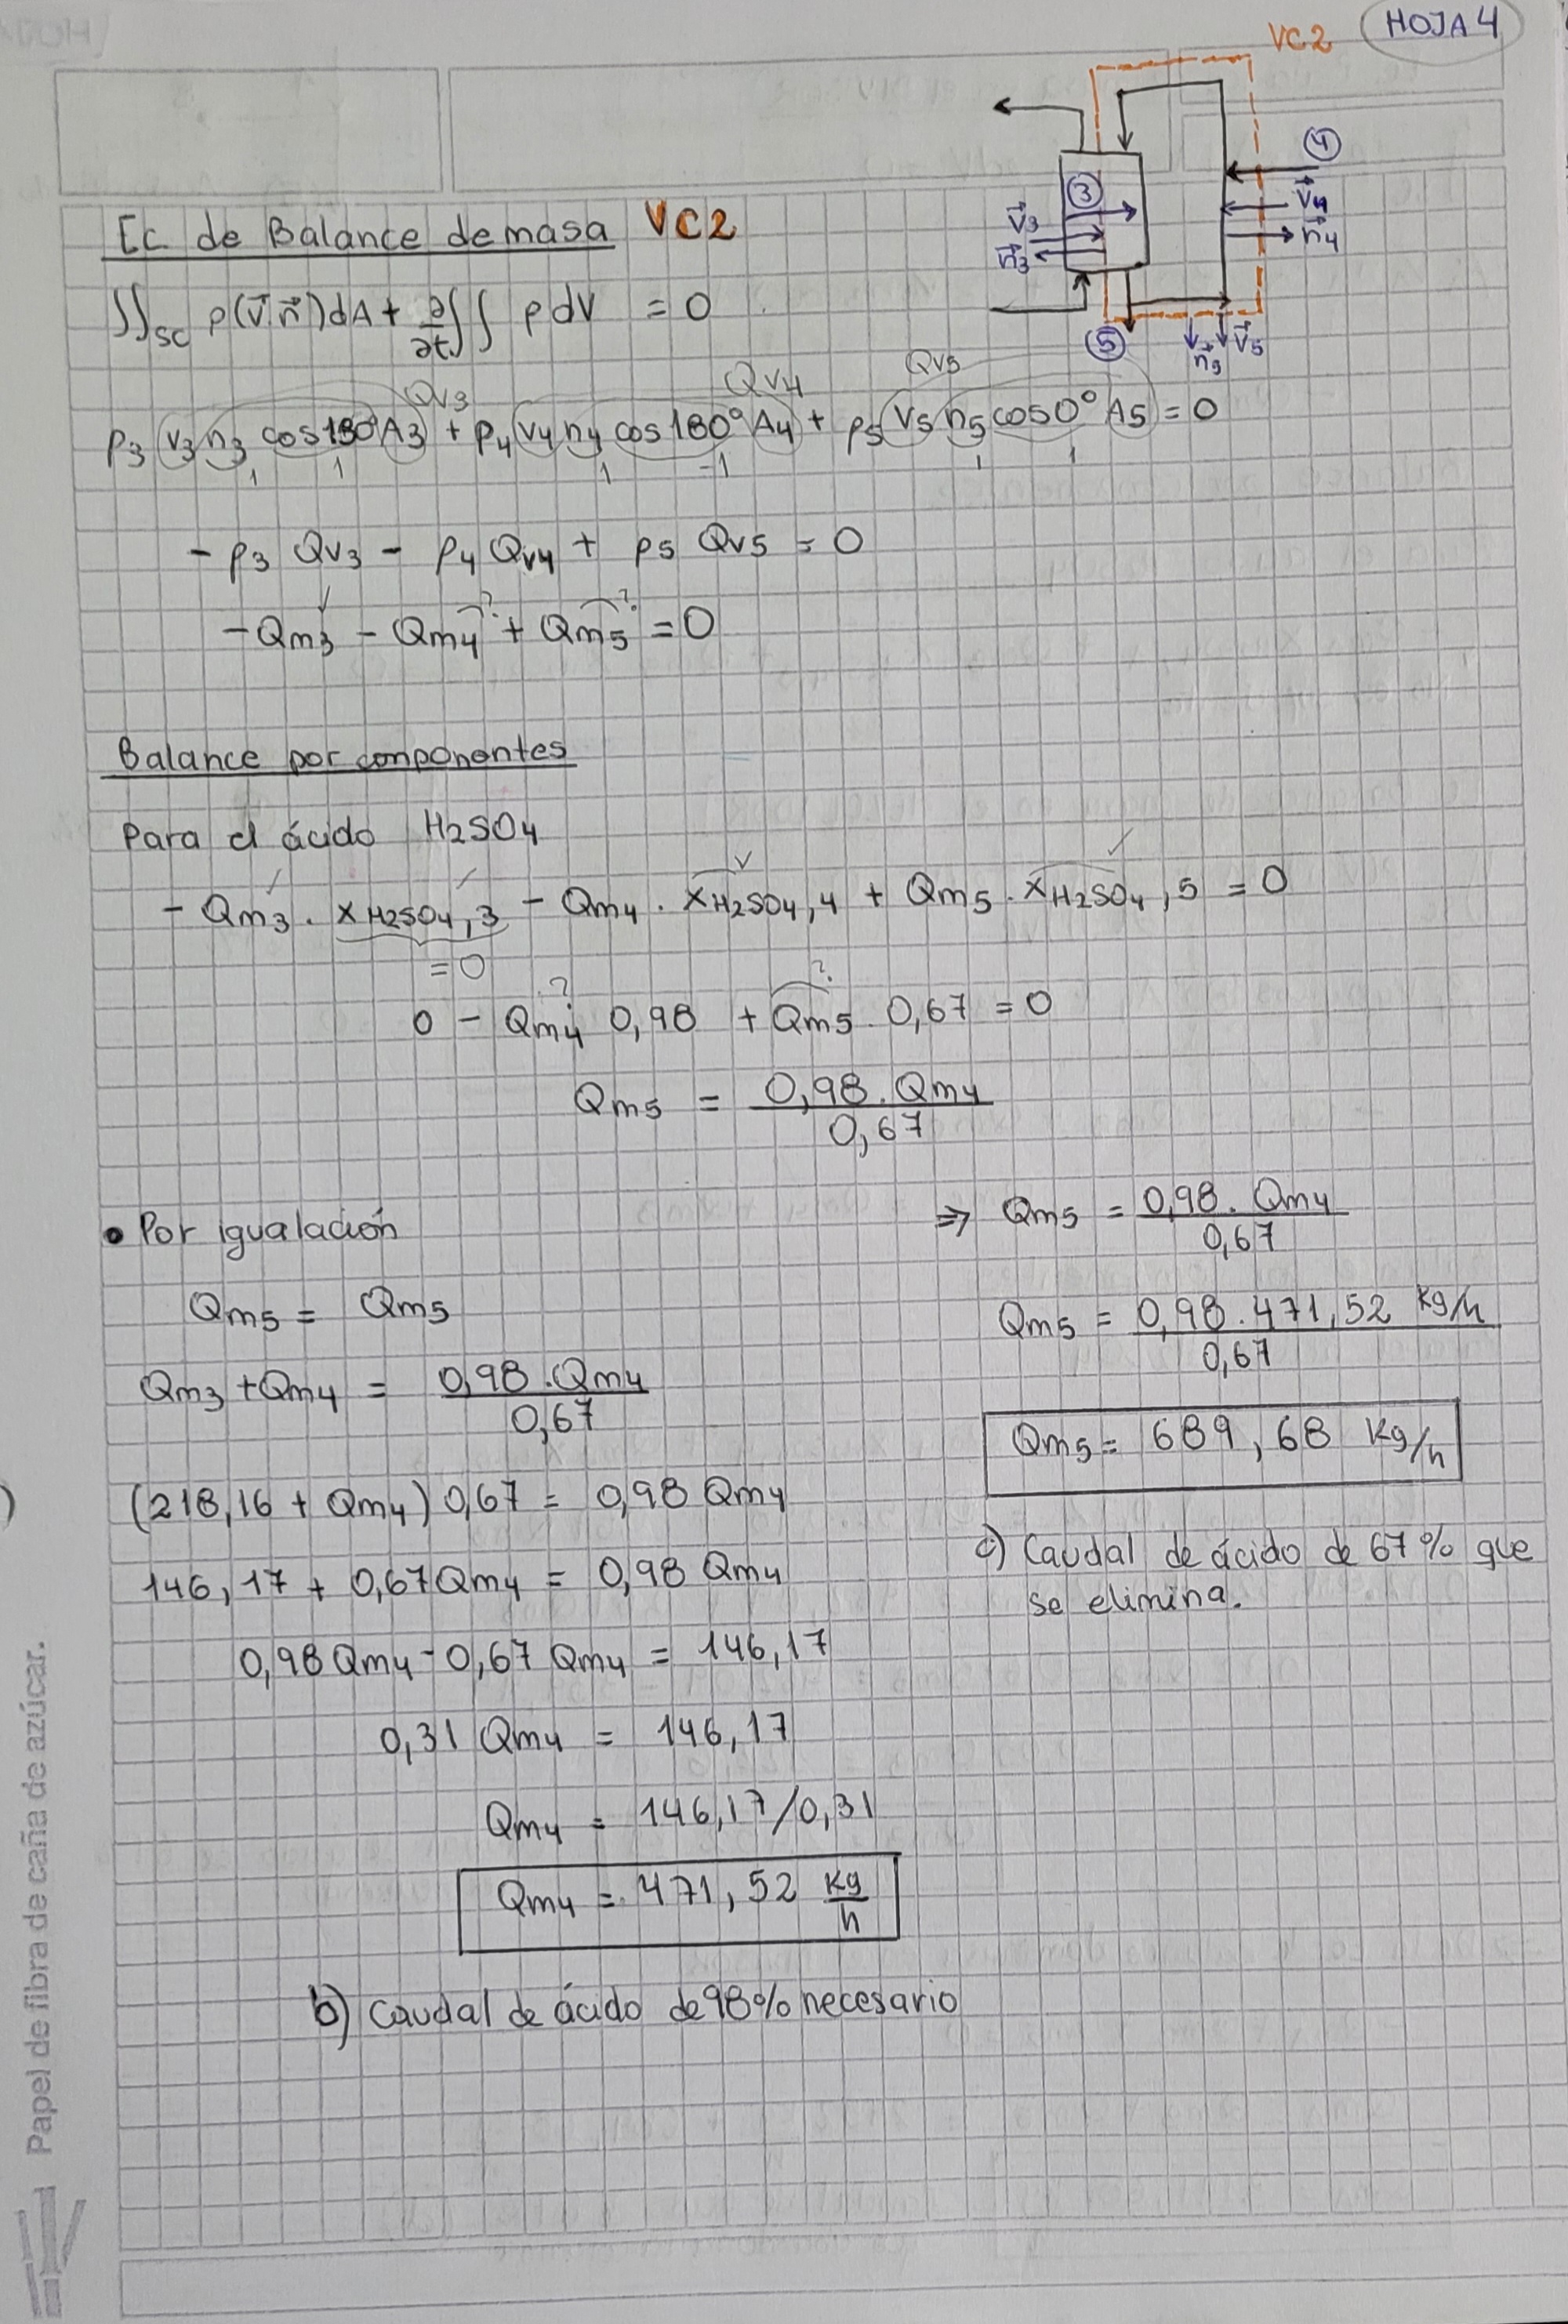 HOJA 4
VC2
④
③
V⃗3
n⃗3
V⃗4
n⃗4
⑤
n⃗5 V⃗5
Ec de Balance de masa VC2
∬sc ρ(v⃗.n⃗)dA + ∂/∂t ∫∫ ρ dV = 0
Qv3 Qv4 Qv5
ρ3 (v3 n3 cos180° A3) + ρ4 (v4 n4 cos 180° A4) + ρ5 (v5 n5 cos0° A5) = 0
1 1 1 -1 1 1
- ρ3 Qv3 - ρ4 Qv4 + ρ5 Qv5 = 0
✓ ? ?
- Qm3 - Qm4 + Qm5 = 0
Balance por componentes
Para el ácido H2SO4
- Qm3 . xH2SO4,3 - Qm4 . xH2SO4,4 + Qm5 . xH2SO4,5 = 0
= 0
? ?
0 - Qm4 0,98 + Qm5 . 0,67 = 0
Qm5 = 0,98 . Qm4 / 0,67
• Por igualación
Qm5 = Qm5
Qm3 + Qm4 = 0,98 . Qm4 / 0,67
(218,16 + Qm4) 0,67 = 0,98 Qm4
146,17 + 0,67 Qm4 = 0,98 Qm4
0,98 Qm4 - 0,67 Qm4 = 146,17
0,31 Qm4 = 146,17
Qm4 = 146,17/0,31
Qm4 = 471,52 kg/h
b) Caudal de ácido de 98% necesario
⇒ Qm5 = 0,98 . Qm4 / 0,67
Qm5 = 0,98 . 471,52 kg/h / 0,67
Qm5 = 689,68 kg/h
c) Caudal de ácido de 67% que
se elimina.
Papel de fibra de caña de azúcar.